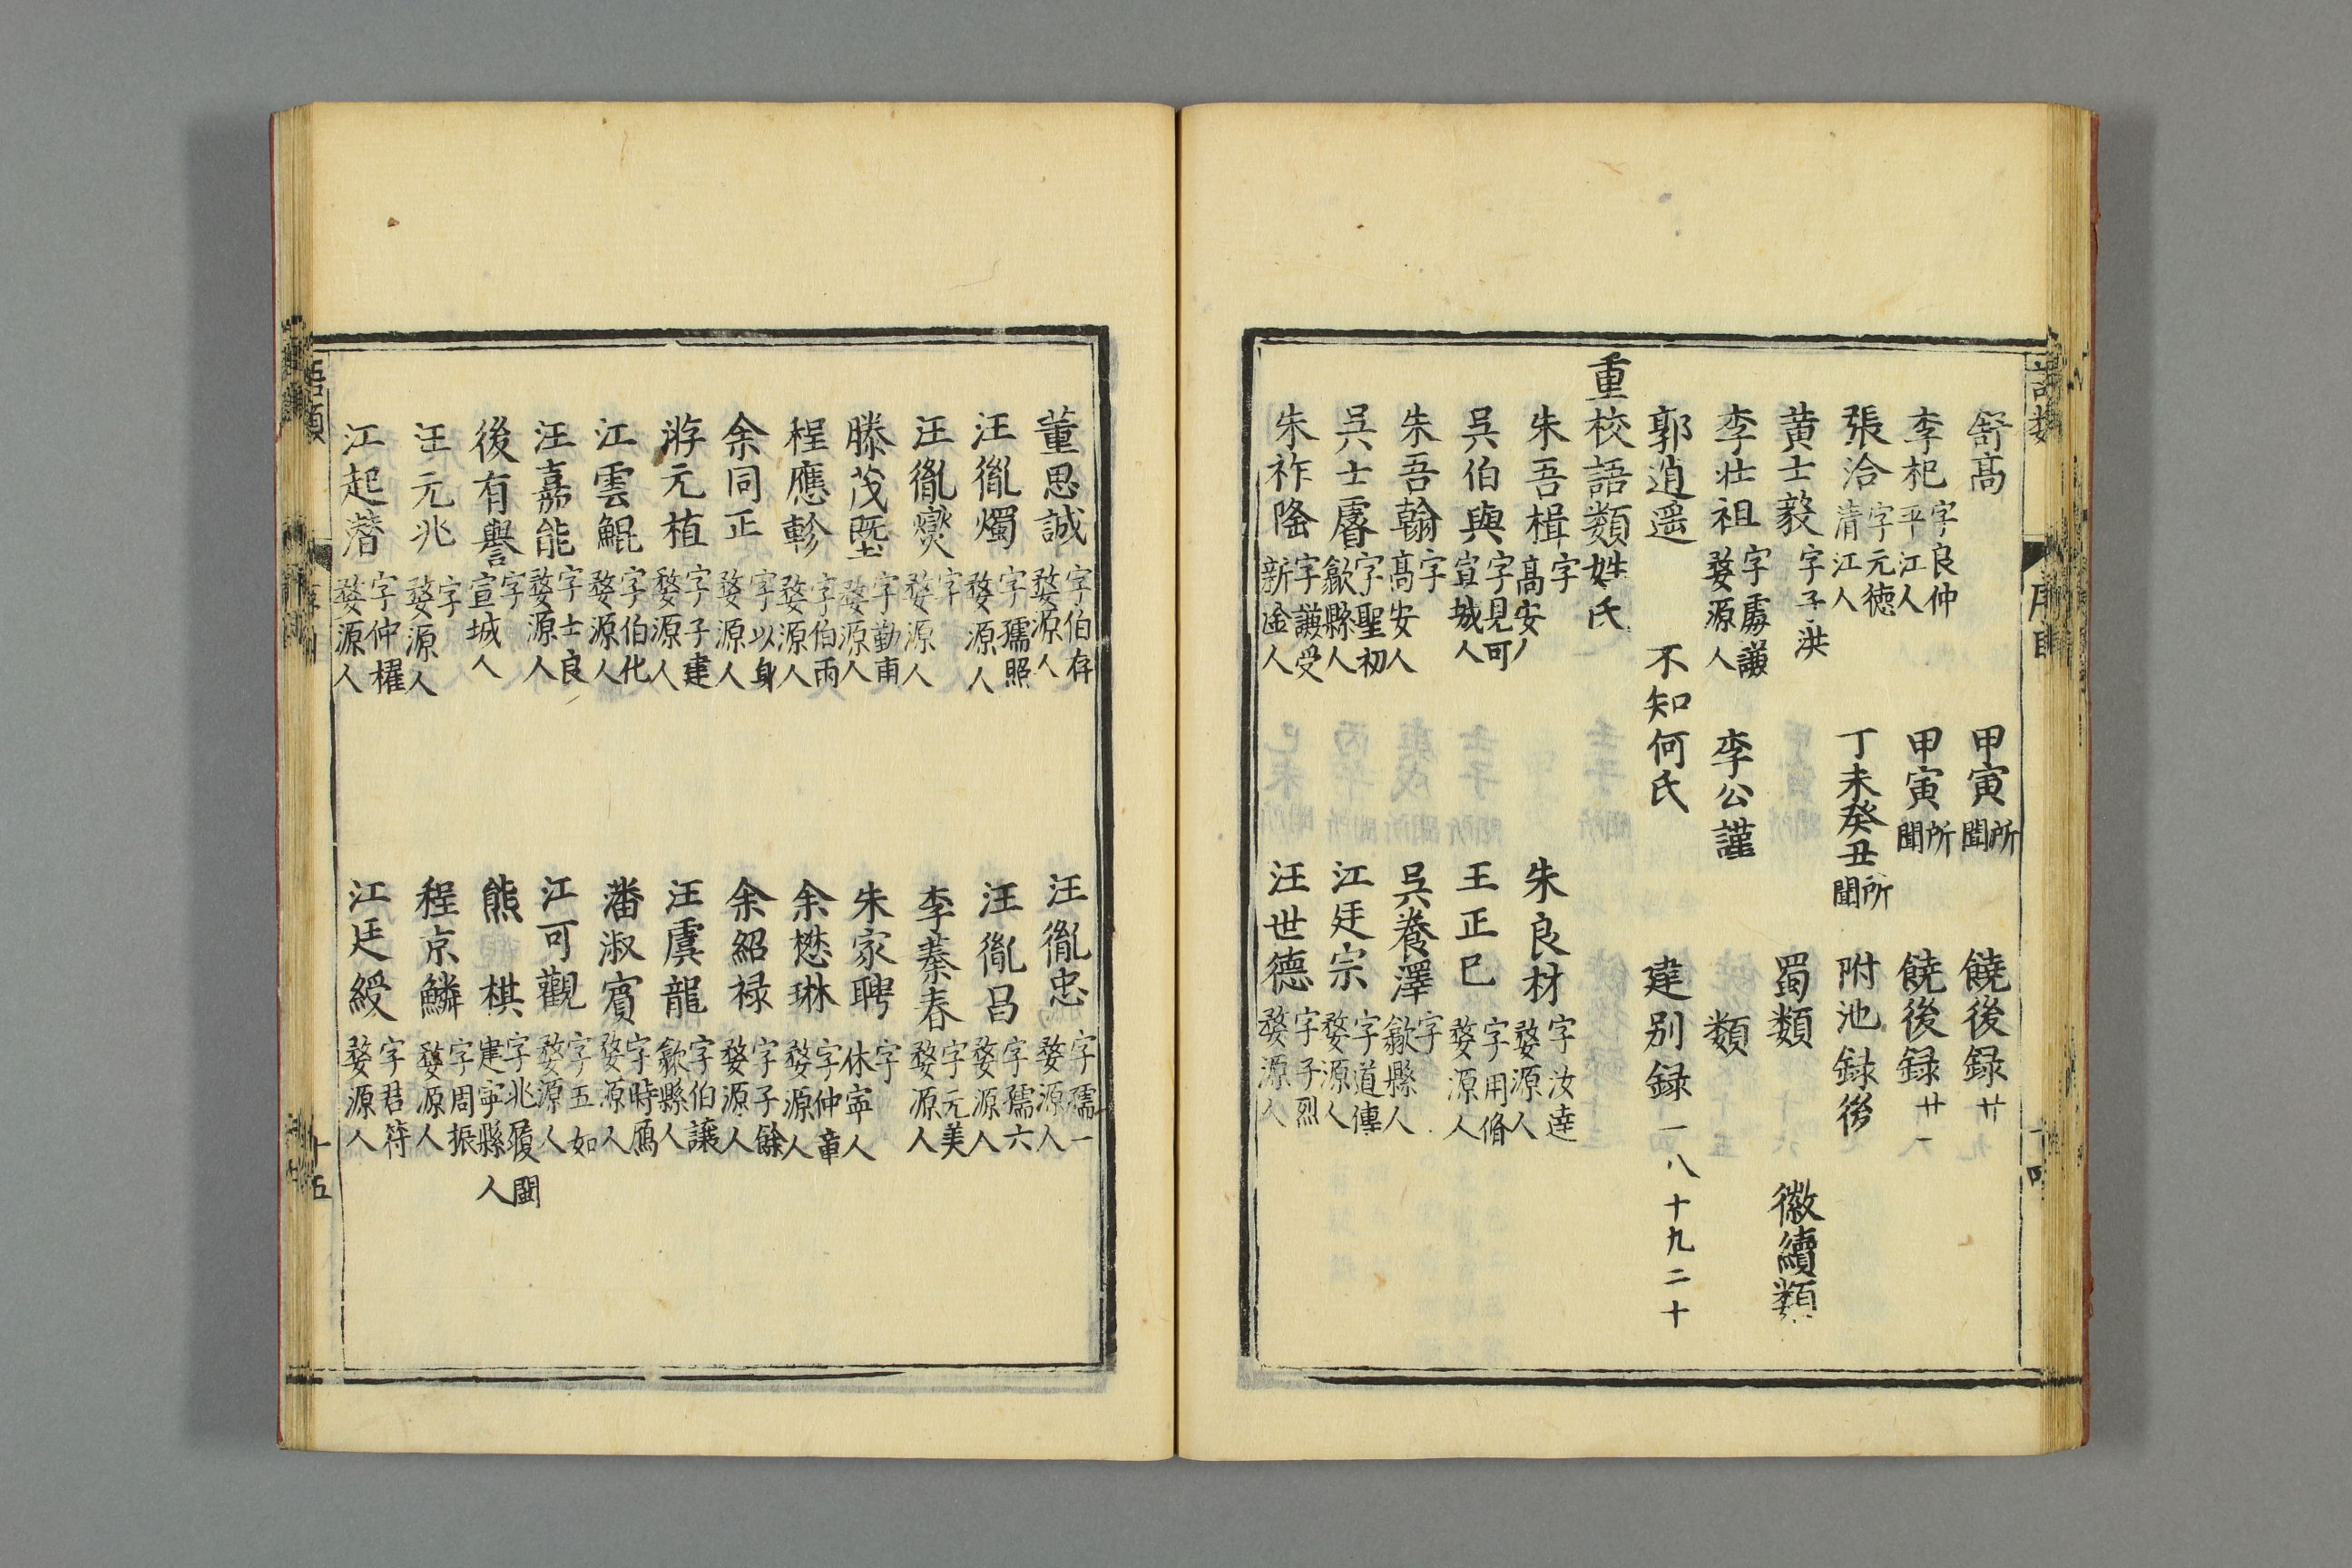 舒高 甲寅所聞 饒後録廿
李杞字良仲平江人 甲寅所聞 饒後録廿一
張洽字元徳清江人 丁未癸丑所聞 附池録後
黄士毅字子洪 蜀類 徽續類
李壯祖字處謙婺源人 李公謹 類
郭逍遥 不知何氏 建别録一八十九二十
重校語類姓氏
朱吾楫字高安人 朱良材字汝達婺源人
吳伯與字見可宣城人 王正巳字用脩婺源人
朱吾翰字高安人 吳養澤字歙縣人
吳士字聖初歙縣人 江廷宗字道傳婺源人
朱祚隆字謙受新淦人 汪世德字子烈婺源人
董思誠字伯存婺源人 汪胤忠字孺一婺源人
汪胤燭字孺照婺源人 汪胤呂字孺六婺源人
汪胤爕字婺源人 李蓁春字元美婺源人
滕茂塈字勤甫婺源人 朱家聘字休寧人
程應軫字伯雨婺源人 余懋琳字仲章婺源人
余同正字以身婺源人 余紹禄字子餘婺源人
游元植字子建婺源人 汪虞龍字伯讓歙縣人
江雲鯤字伯化婺源人 潘淑賓字時鴈婺源人
汪嘉能字士良婺源人 江可觀字五如婺源人
後有譽字宣城人 熊棋字兆履閩建寧縣人
汪元兆字婺源人 程京鱗字周振婺源人
江起潛字仲櫂婺源人 江廷綬字君符婺源人